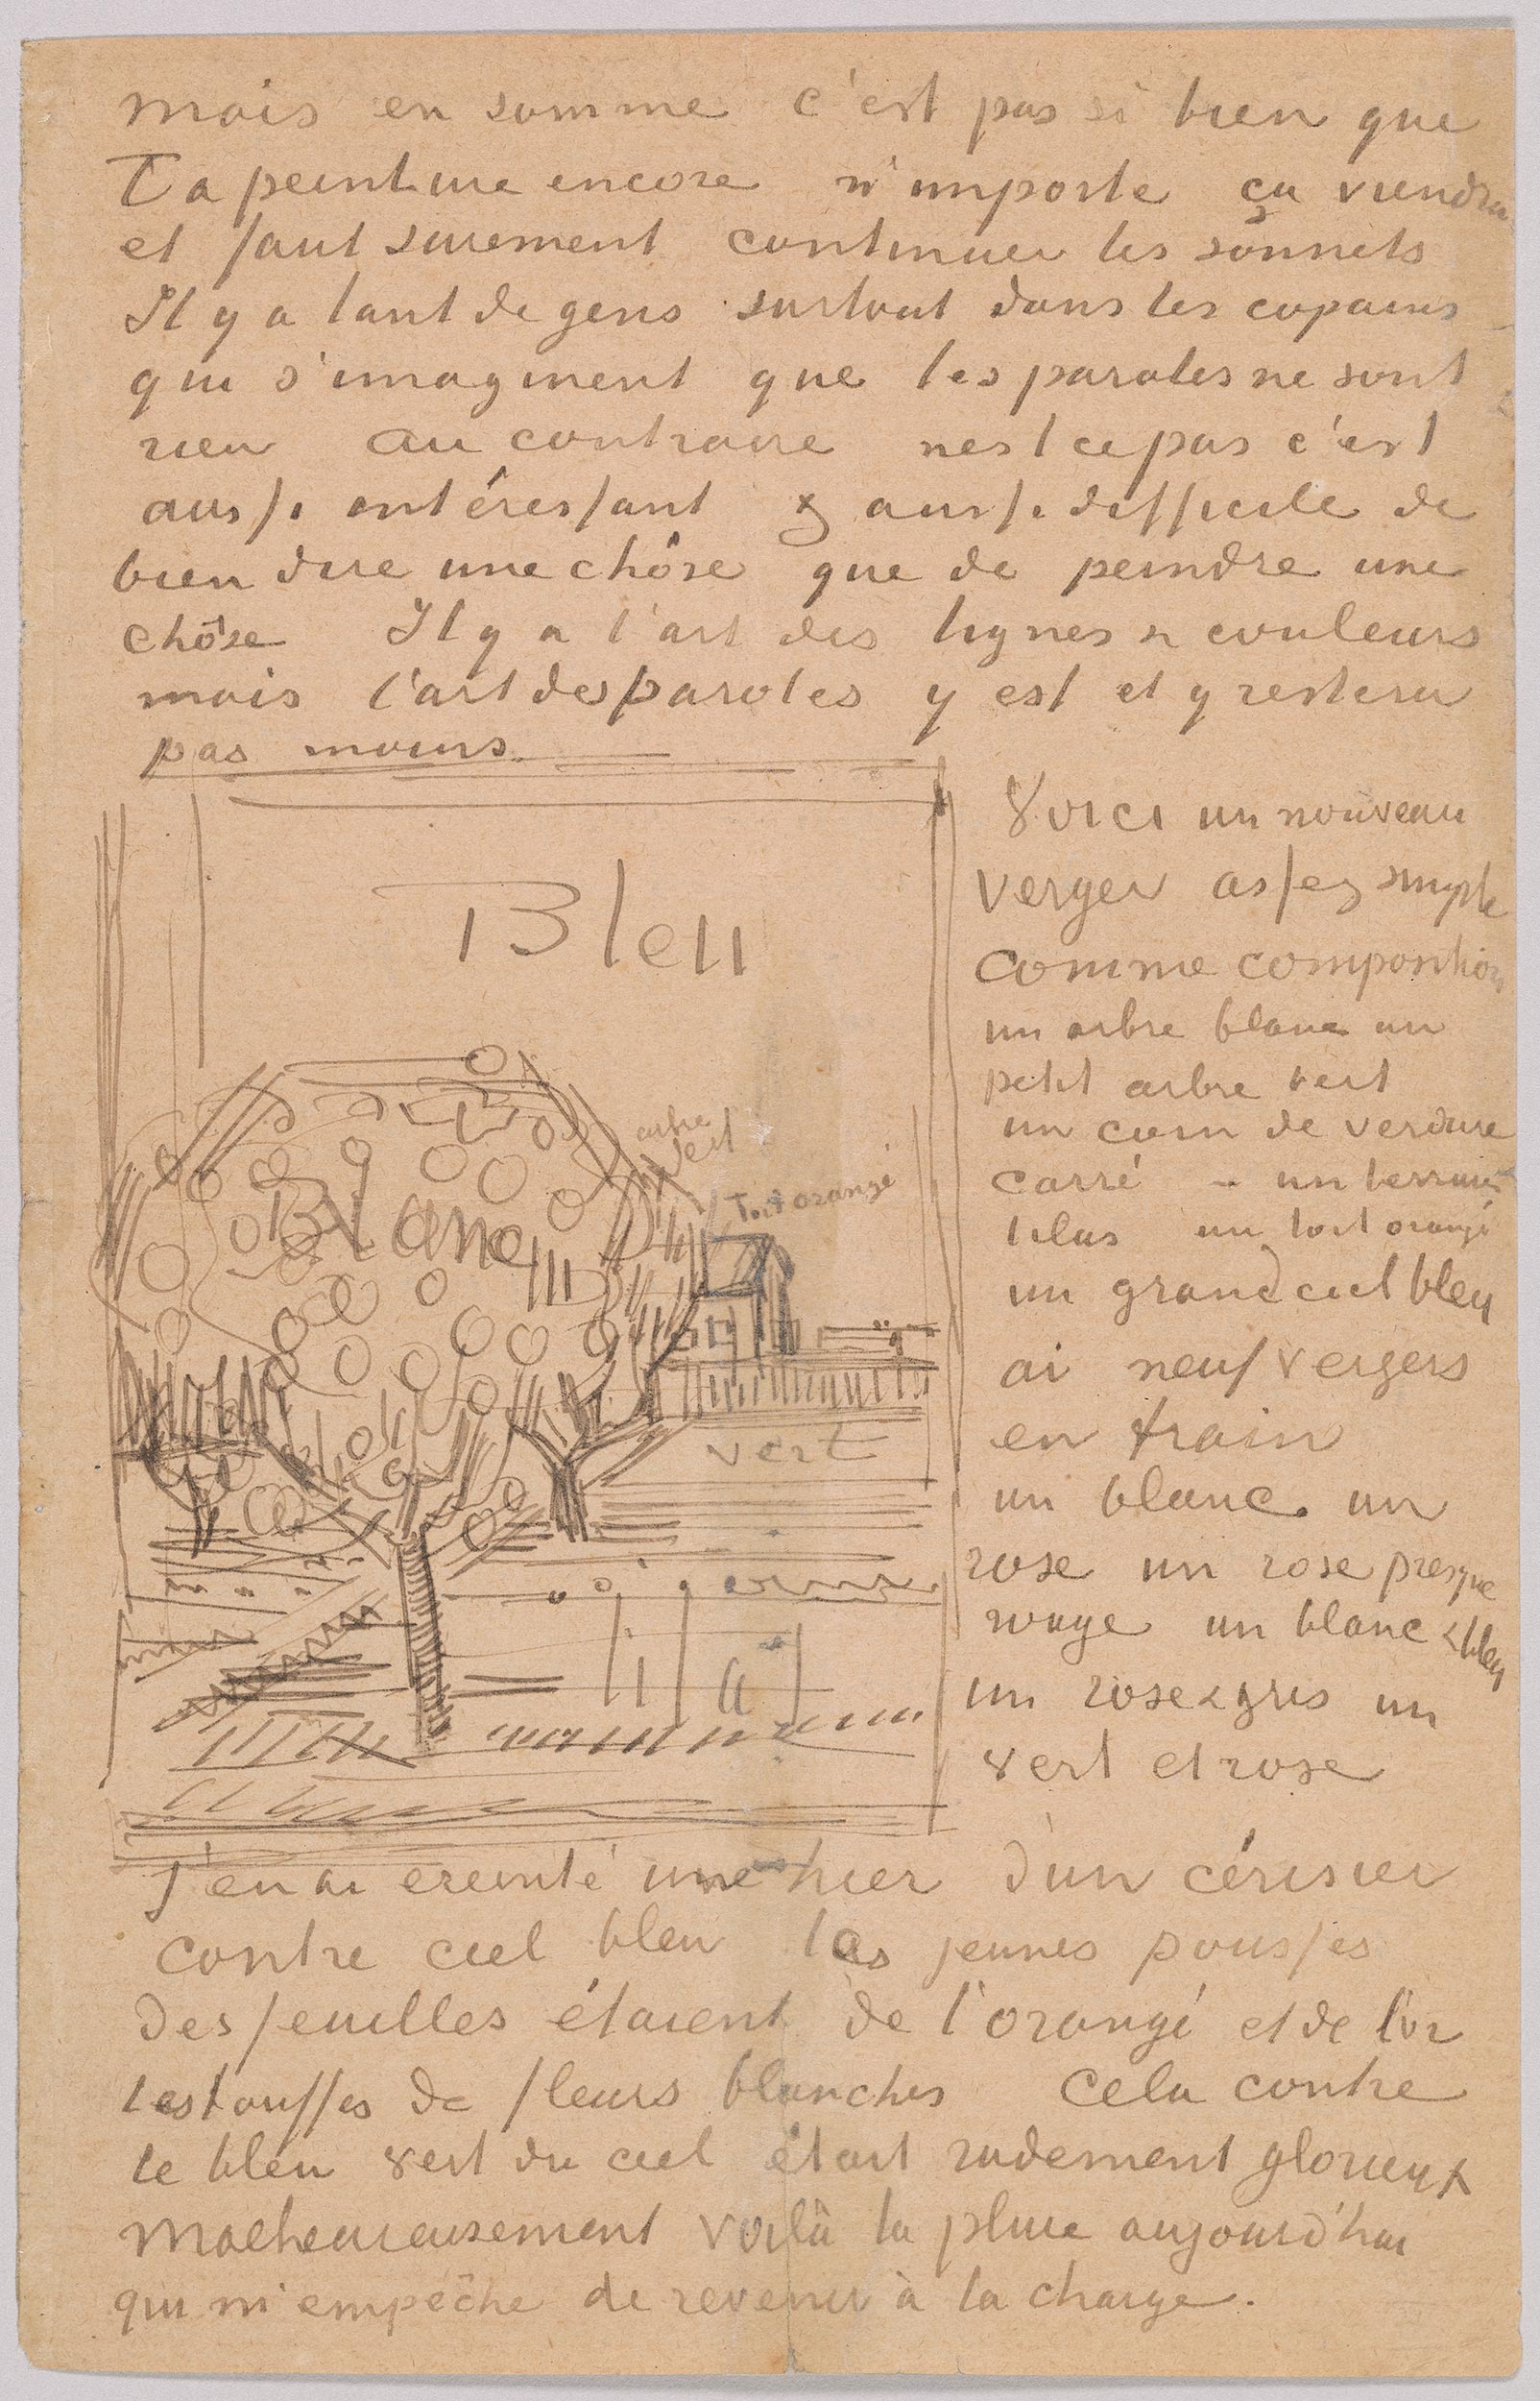 mais en somme c'est pas si bien que
Ta peinture encore n'importe ça viendra
et faut surement continuer les sonnets
Il y a tant de gens surtout dans les copains
qui s'imaginent que les paroles ne sont
rien au contraire nest ce pas c'est
aussi intéressant & aussi difficile de
bien dire une chôse que de peindre une
chôse Il y a l'art des lignes & couleurs
mais l'art des paroles y est et y restera
pas moins.
Bleu
arbre
vert
Toit orangé
Blanc
vert
lilas
Voici un nouveau
verger assez simple
comme composition
un arbre blanc un
petit arbre vert
un coin de verdure
carré – un terrain
lilas un toit orangé
un grand ciel bleu
ai neuf vergers
en train
un blanc. un
rose un rose presque
rouge un blanc & bleu
un rose & gris un
vert et rose
J'en ai ereinté un hier d'un cérisier
contre ciel bleu les jeunes pousses
des feuilles étaient de l'orangé et de l'or
les touffes de fleurs blanches cela contre
le bleu vert du ciel était rudement glorieux
Malheureusement voilà la pluie aujourd'hui
qui m'empêche de revenir à la charge.